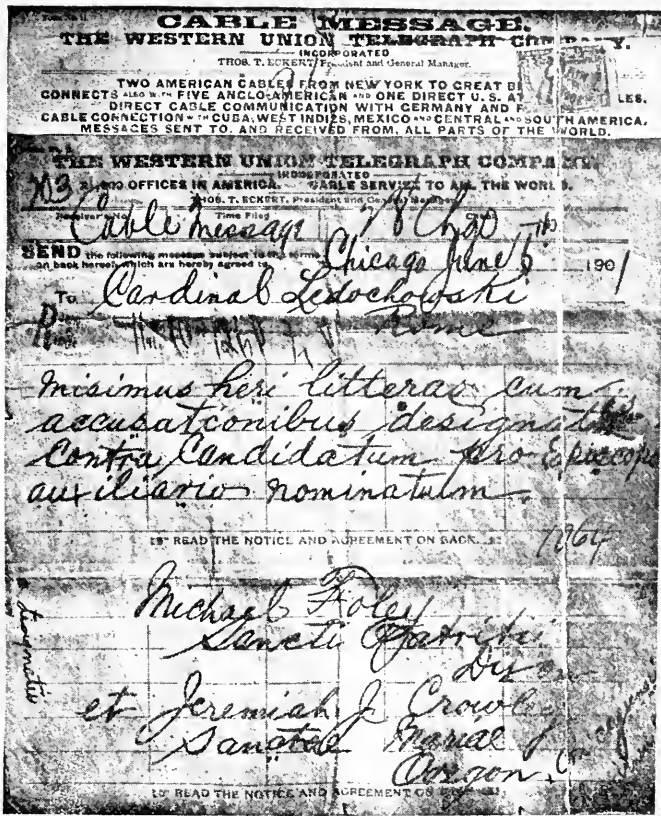 CABLE MESSAGE.
THE WESTERN UNION TELEGRAPH COMPANY.
INCORPORATED
THOS. T. ECKERT, President and General Manager.
TWO AMERICAN CABLES FROM NEW YORK TO GREAT
CONNECTS ALSO WITH FIVE ANGLO-AMERICAN AND ONE DIRECT U.S.
DIRECT CABLE COMMUNICATION WITH GERMANY AND
CABLE CONNECTION WITH CUBA, WEST INDIES, MEXICO AND CENTRAL AND SOUTH AMERICA.
MESSAGES SENT TO, AND RECEIVED FROM, ALL PARTS OF THE WORLD.
THE WESTERN UNION TELEGRAPH COMPANY.
INCORPORATED
OFFICES IN AMERICA. CABLE SERVICE TO ALL THE WORLD.
THOS. T. ECKERT, President and General Manager.
Receiver's No. Time Filed Check
Cable Message
SEND the following message subject to the terms
on back hereof, which are hereby agreed to.
Chicago June 1901
To Cardinal Ledochowski
Rome
Misimus heri litteras cum
accusationibus
contra Candidatum pro Episcopo
auxiliario nominatum.
READ THE NOTICE AND AGREEMENT ON BACK.
1064
Michael Foley
Sancti
et Jeremiah J. Crowley
Mariae
Oregon
READ THE NOTICE AND AGREEMENT ON BACK.